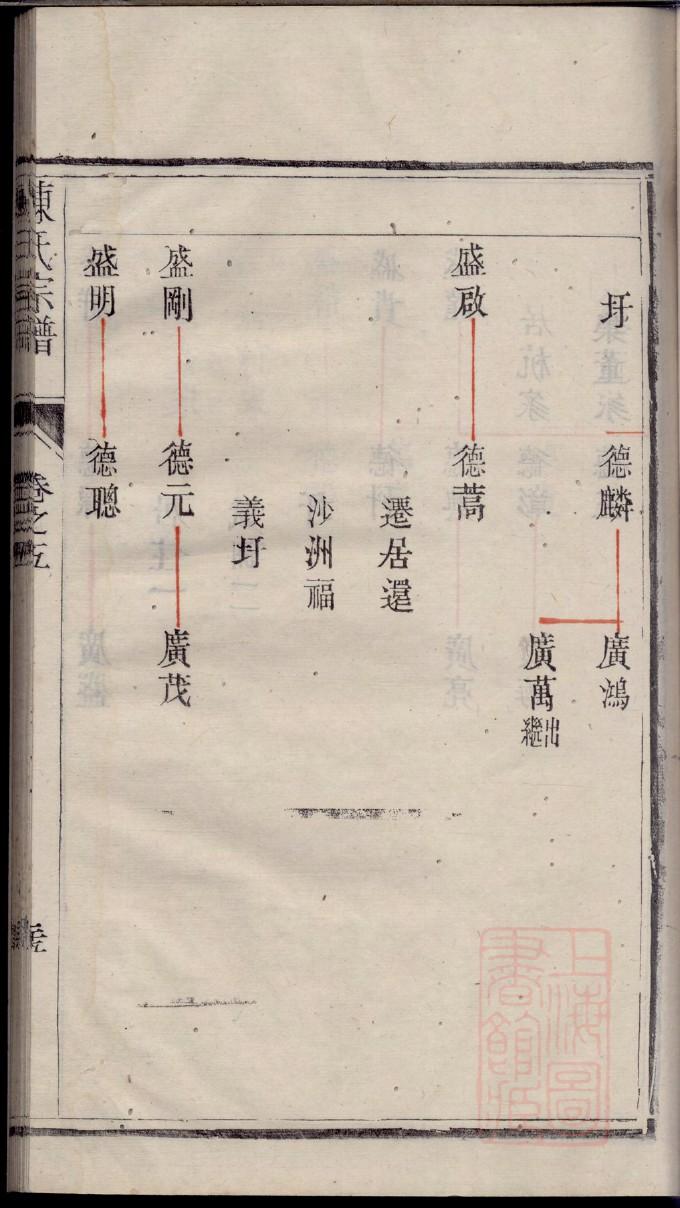 圩　德麟　廣鴻
廣萬出繼
盛啟　德蒿
遷居還
沙洲福
義圩
盛剛　德元　廣茂
盛明　德聰
陳氏宗譜
卷之五
上海圖書館藏